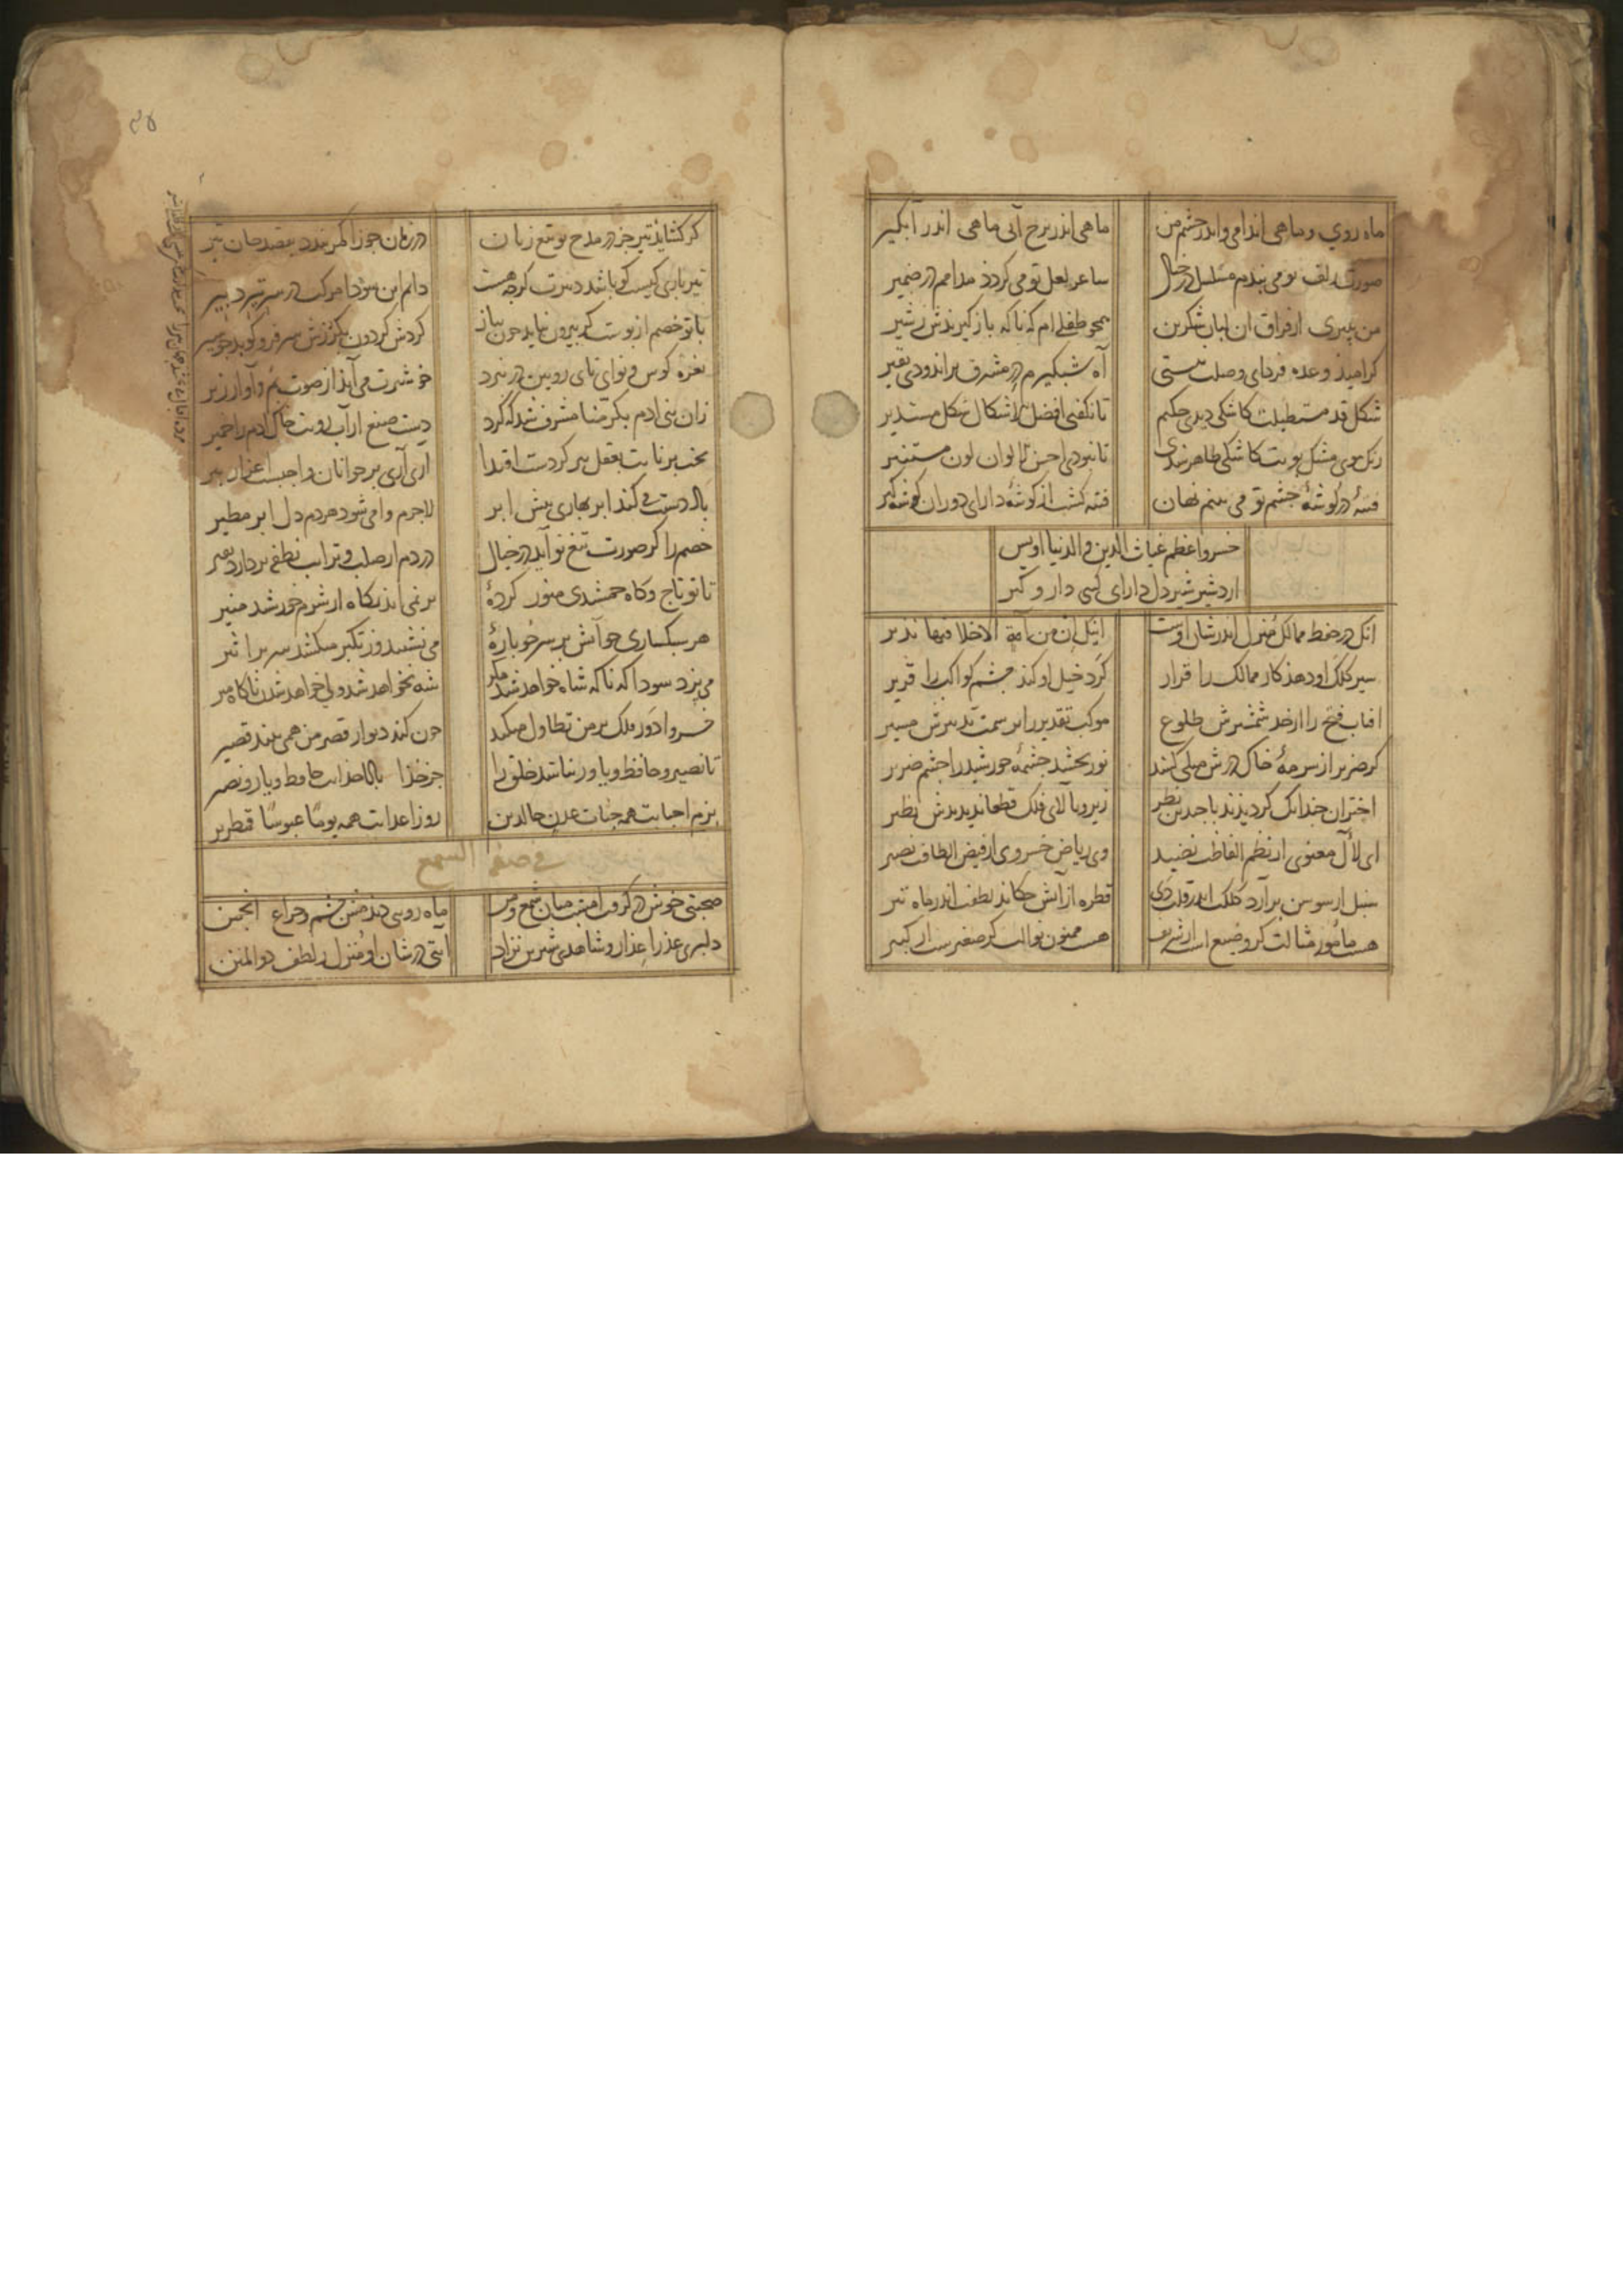 ماه روی و ماهی اندامی و اندر چشم من ماهی اندر برج آبی ماهی اندر آبگیر
صورت زلف تو می بندم مسلسل در خیال ساغر لعل تو می کردد مدامم در ضمیر
من بپیری از فراق آن لبان شکرین همچو طفلی ام که ناکه باز گیرندش ز شیر
گر امیذ وعده فردای وصلت نیستی آه شبگیرم در مشرق براندودی بقیر
شکل قد مستطیلت کاشکی دیدی حکیم تا نکفتی افضل الاشکال شکل مستدیر
رنک موی مشک بویت کاشکی ظاهر شدی تا نبودی احسن الالوان لون مستنیر
فتنه در گوشهٔ چشم تو می بینم نهان فتنه گشت از گوشهٔ دارای دوران گوشه گیر
خسرو اعظم غیاث الدین و الدنیا اویس
اردشیر شیردل دارای کسری دار و گیر
آنک در حفظ ممالک منزل اندر شان اوست ان من امة الا خلا فیها نذیر
سیر کلک او دهذ کار ممالک را قرار گرد خیل او کند چشم کواکب را قریر
آفتاب فتح را از حد شمشیرش طلوع موکب تقدیر را بر سمت تدبیرش مسیر
گر ضریر از سرمهٔ خاک درش میلی کشد نور بخشد چشمهٔ خورشید را چشم ضریر
اختران چندانک کردیدند با چندین نظر زیر و بالای فلک قطعا ندیدندش نظیر
ای لآل معنوی از نظم الفاظت نضید وی ریاض خسروی از فیض الطافت نضیر
سنبل از سوسن برآرد کلک اندر قلت دی قطره از آتش چکاند لطفت اندر ماه تیر
هست مامور مثالت گر وضیع است ار شریف هست ممنون نوالت گر صغیرست ار کبیر
گر گشاید تیر جز در مدح تو تیغ زبان در زمان جوزا کمر بندد بقصد جان تیر
تیر باری کیست کو باشد دبیرت گرچه هست دایم این سودا مرکب در سر تیر دبیر
با تو خصم از پوست گر بیرون نیاید چون پیاز گردش گردون بگرزش سر فرو کوبد چو سیر
نعره کوس و نوای نای رویین در نبرد خوشترت می آیذ از صوت بم و آواز زیر
زان بنی آدم بکرمنا مشرف شد که کرد دست صنع از آب رویت خاک آدم را خمیر
بخت برنایت بعقل پیر کردست اقتدا آری آری بر جوانان واجبست اعزاز پیر
یاد دستت می کند ابر بهاری پیش ابر لاجرم وا می شود هردم دل ابر مطیر
خصم را گر صورت تیغ تو آید در خیال در دم از صلب و ترائب نطفه بردارد نفیر
تا تو تاج و گاه جمشیدی منور کردهٔ بر نمی آید پگاه از شرم خورشید منیر
هر سبکساری چو آتش بر سر خوبارهٔ می نشیند وز تکبر میکشد سر بر اثیر
می پزد سودا که ناکه شاه خواهد شد مگر شه نخواهد شد ولی خواهد شدن ناگاه میر
خسروا دور فلک بر من تطاول میکند چون کند دیوار قصر من همی بیند قصیر
تا نصیر و حافظ و یاور نباشد خلق را جز خذا بادا خدایت حافظ و یار و نصیر
بزم احبابت همه جنات عدن خالدین روز اعدایت همه یوما عبوسا قمطریر
فی صفة الشمع
صحبتی خوش درگرفت امشب میان شمع و من ماه رویی دید چشمم چراغ انجمن
دلبری عذرا عذار و شاهدی شیرین نژاد آیتی در شان او منزل ز لطف ذوالمنن